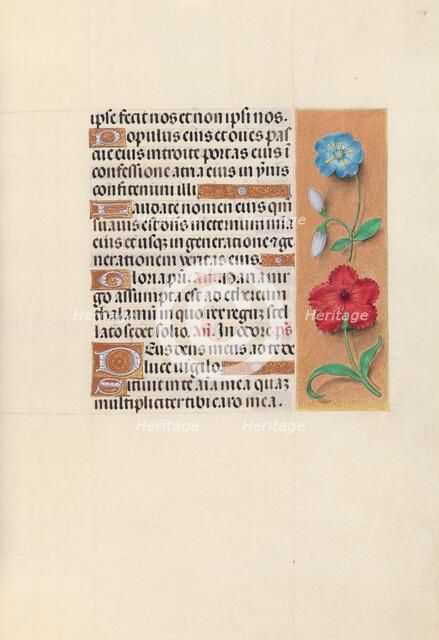 ipse fecit nos et non ipsi nos.
Populus eius et oves pas
cue eius introite portas eius ī
confessione atria eius in ẏm̄s
confitemini illi.
Laudate nomen eius qm̄
suavis est dominus in eternum mīa
eius et usq; in generatione et ge
nerationem veritas eius.
Gloria pri. An. Maria vir
go assumpta est ad ethereum
thalamū in quo rex regū stel
lato sedet solio. An. In odore ps
Deus deus meus ad te de
luce vigilo.
Sitivit in te aīa mea quaʒ
multipliciter tibi caro mea.
Heritage
Heritage
Heritage
Heritage
Heritage
Heritage